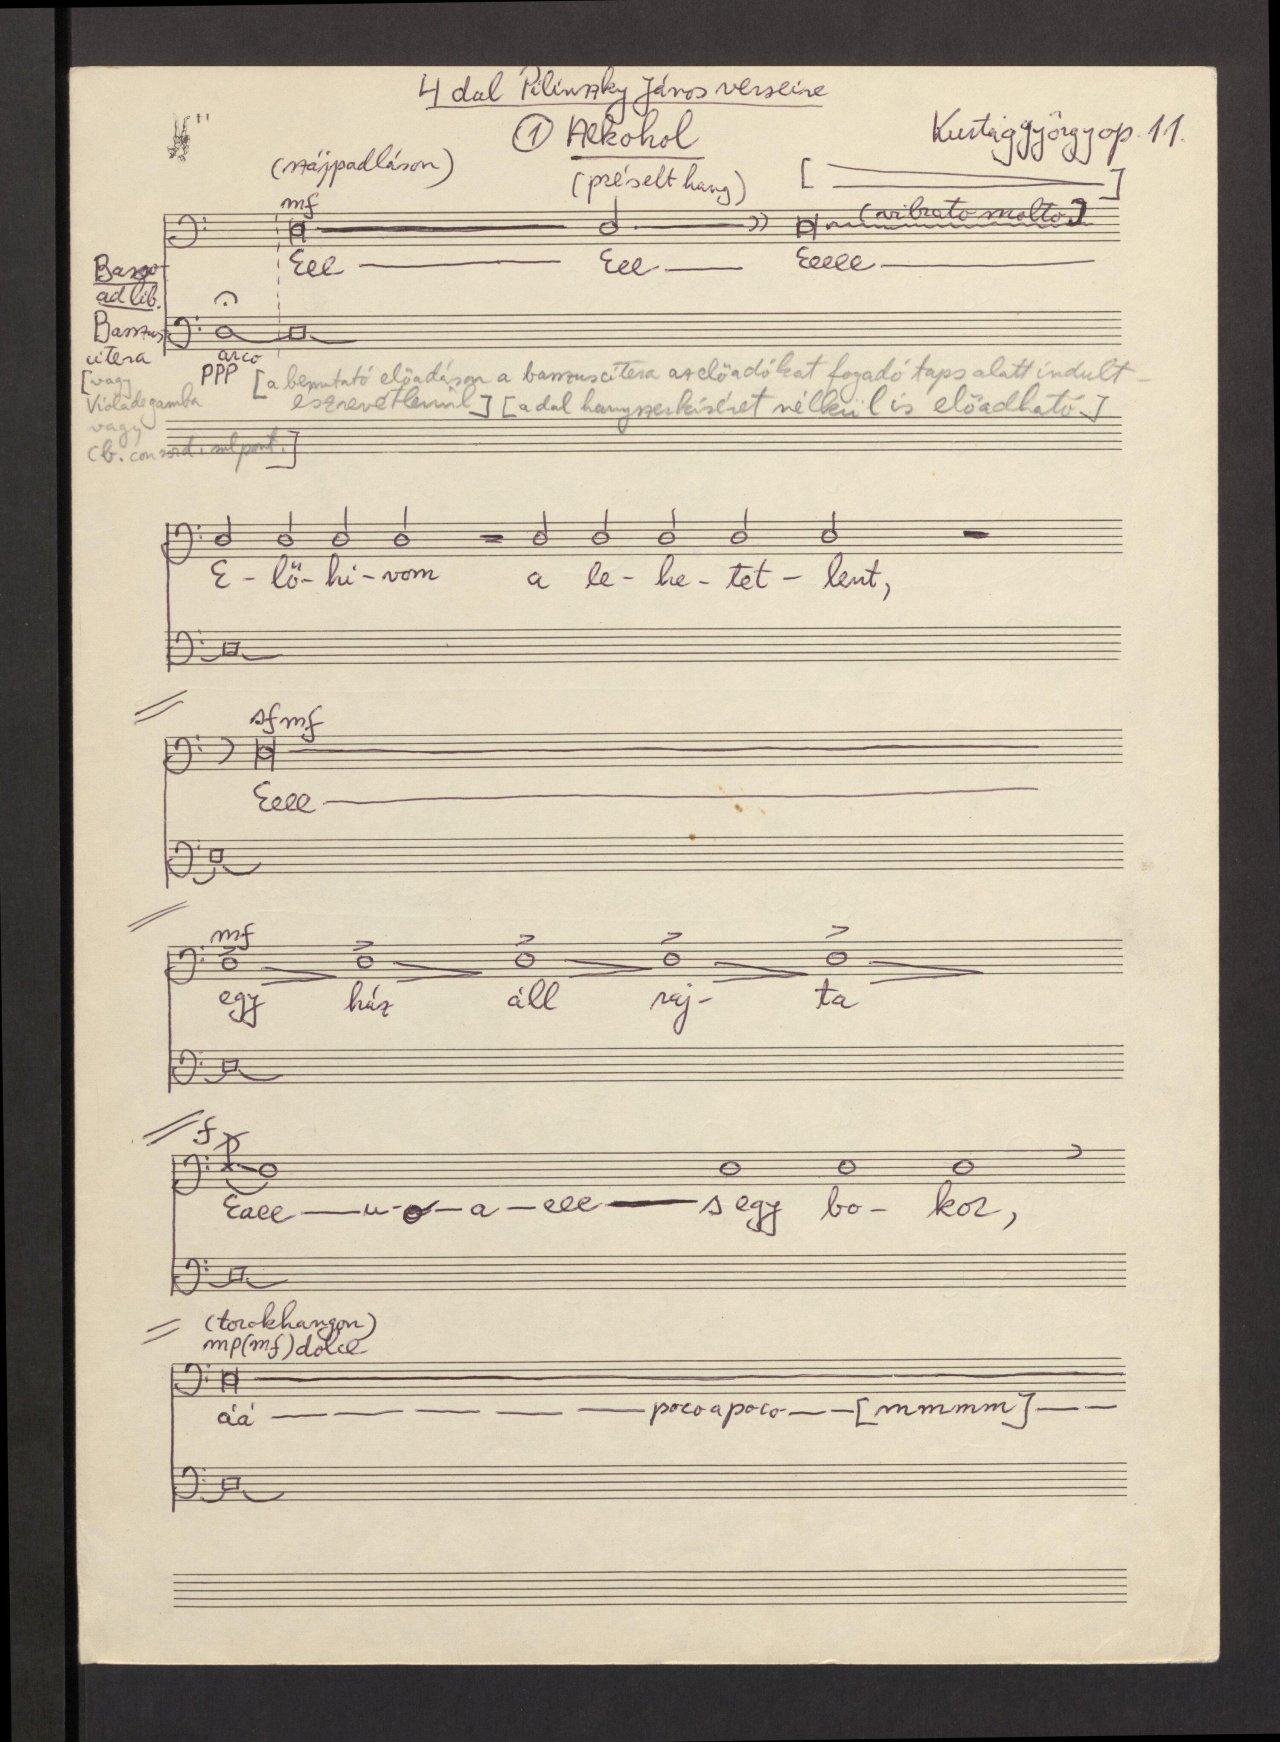 4 dal Pilinszky János verseire
① Alkohol
Kurtág György op. 11.
(szájpadláson)
(préselt hang)
mf
(vibrato molto)
Eee — Eee — Eeeee —
Basso
ad lib.
Basszus
citera
arco
ppp
[vagy
Viola de gamba
vagy
Cb. con sord. sul pont.]
[a bemutató előadáson a basszuscitera az előadókat fogadó taps alatt indult -
észrevétlenül] [a dal hangszerkíséret nélkül is előadható]
E - lő - hi - vom a le - he - tet - lent,
sf mf
Eeee —
mf
egy ház áll raj - ta
f
Eaee — u - o — a — eee — s egy bo - kor,
(torokhangon)
mp(mf) dolce
áá — — — — — poco a poco — — [mmmm] — —